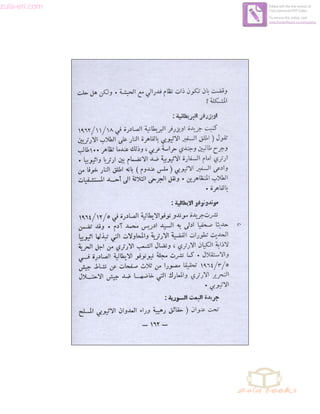 zula-eri.com
وقضت بان تكون ذات نظام فدرالي مع الحبشة • ولكن هل حلت
المشكلة ؟
اوبزرفر البريطانية :
كتبت جريدة اوبزرفر البريطانية الصادرة في ١٩٦٢/١١/١٨
تقول ( اطلق السفير الاثيوبي بالقاهرة النار على الطلاب الارتريين
وجرح طالبين وجندي حراسة عربي ، وذلك عندما تظاهر ٤٠٠ طالب
ارتري امام السفارة الاثيوبية ضد الانضمام بين ارتريا واثيوبيا •
وادعى السفير الاثيوبي ( ملس عندوم ) بانه اطلق النار خوفا من
الطلاب المتظاهرين • ونقل الجرحى الثلاثة الى أحد المستشفيات
بالقاهرة •
موندونوفو الايطالية :
نشرت جريدة موندو نوفو الايطالية الصادرة في ١٩٦٤/١٢/٥
حديثا صحفيا ادلى به السيد ادريس محمد آدم • وقد تضمن
الحديث تطورات القضية الارترية والمحاولات التي تبذلها اثيوبيا
لاذابة الكيان الارتري ، ونضال الشعب الارتري من اجل الحرية
والاستقلال • كما نشرت مجلة الايطالية الصادرة في
١٩٦٤/٣/٥ تحقيقا مصورا من ثلاث صفحات عن نشاط جيش
التحرير الارتري والمعارك التي خاضها ضد جيش الاحتلال
الاثيوبي •
جريدة البعث السورية :
تحت عنوان ( حقائق رهيبة وراء العدوان الاثيوبي المسلح
— ١٦٢ —